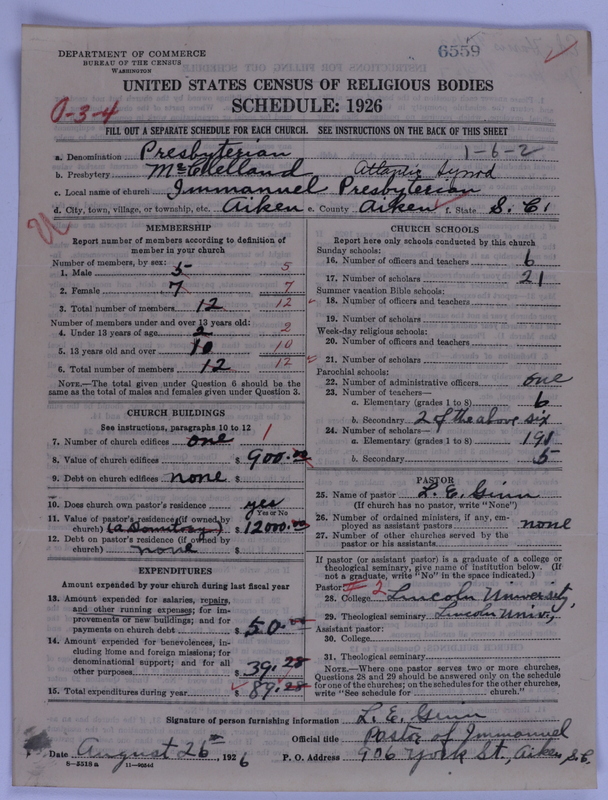 DEPARTMENT OF COMMERCE
BUREAU OF THE CENSUS
WASHINGTON
6559
UNITED STATES CENSUS OF RELIGIOUS BODIES
SCHEDULE: 1926
0-3-4
FILL OUT A SEPARATE SCHEDULE FOR EACH CHURCH. SEE INSTRUCTIONS ON THE BACK OF THIS SHEET
1-6-2
a. Denomination Presbyterian
b. Presbytery McClelland Atlantic Synod
c. Local name of church Immanuel Presbyterian
d. City, town, village, or township, etc. Aiken e. County Aiken f. State S. C.
MEMBERSHIP
Report number of members according to definition of
member in your church
Number of members, by sex:
1. Male 5 5
2. Female 7 7
3. Total number of members 12 12
Number of members under and over 13 years old:
4. Under 13 years of age 2 2
5. 13 years old and over 10 10
6. Total number of members 12 12
NOTE.—The total given under Question 6 should be the
same as the total of males and females given under Question 3.
CHURCH BUILDINGS
See instructions, paragraphs 10 to 12
7. Number of church edifices one 1
8. Value of church edifices $ 900.00
9. Debt on church edifices none $
10. Does church own pastor's residence yes
Yes or No
11. Value of pastor's residence (if owned by
church) (a Dormitory) $ 12000.00
12. Debt on pastor's residence (if owned by
church) none $
EXPENDITURES
Amount expended by your church during last fiscal year
13. Amount expended for salaries, repairs,
and other running expenses; for im-
provements or new buildings; and for
payments on church debt $ 50.00
14. Amount expended for benevolences, in-
cluding home and foreign missions; for
denominational support; and for all
other purposes $ 39.28
15. Total expenditures during year $ 89.28
CHURCH SCHOOLS
Report here only schools conducted by this church
Sunday schools:
16. Number of officers and teachers 6
17. Number of scholars 21
Summer vacation Bible schools:
18. Number of officers and teachers
19. Number of scholars
Week-day religious schools:
20. Number of officers and teachers
21. Number of scholars
Parochial schools:
22. Number of administrative officers one
23. Number of teachers—
a. Elementary (grades 1 to 8) 6
b. Secondary 2 of the above six
24. Number of scholars—
a. Elementary (grades 1 to 8) 198
b. Secondary 5
PASTOR
25. Name of pastor L. E. Ginn
(If church has no pastor, write "None")
26. Number of ordained ministers, if any, em-
ployed as assistant pastors none
27. Number of other churches served by the
pastor or his assistants
If pastor (or assistant pastor) is a graduate of a college or
theological seminary, give name of institution below. (If
not a graduate, write "No" in the space indicated.)
Pastor: 2
28. College Lincoln University,
29. Theological seminary Lincoln Univ.,
Assistant pastor:
30. College
31. Theological seminary
NOTE.—Where one pastor serves two or more churches,
Questions 28 and 29 should be answered only on the schedule
for one of the churches; on the schedules for the other churches,
write "See schedule for church."
Signature of person furnishing information L. E. Ginn
Official title Pastor of Immanuel
Date August 26th, 1926 P. O. Address 906 York St., Aiken, S.C.
8-5518a 11-9034d